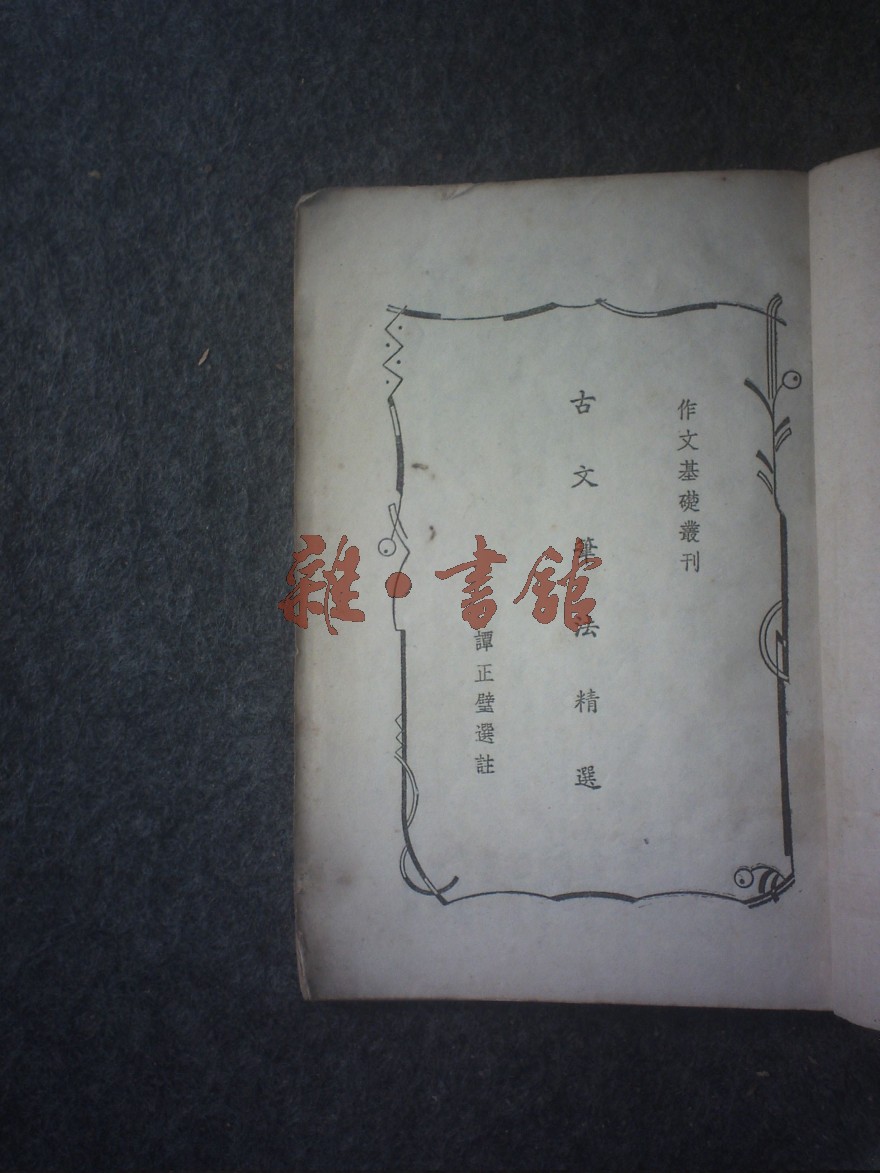 作文基礎叢刊
古文筆法精選
譚正璧選註
雜·書館